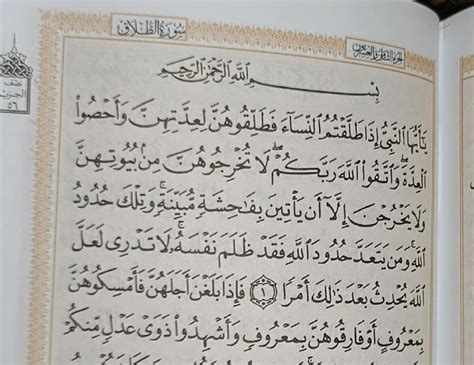 سُورَةُ الطَّلَاقِ
الجزء الثامن والعشرون
نصف
الحزب
٥٦
بِسْمِ اللَّهِ الرَّحْمَٰنِ الرَّحِيمِ
يَٰٓأَيُّهَا النَّبِيُّ إِذَا طَلَّقْتُمُ النِّسَآءَ فَطَلِّقُوهُنَّ لِعِدَّتِهِنَّ وَأَحْصُوا۟
الْعِدَّةَ ۖ وَاتَّقُوا۟ اللَّهَ رَبَّكُمْ ۖ لَا تُخْرِجُوهُنَّ مِنۢ بُيُوتِهِنَّ
وَلَا يَخْرُجْنَ إِلَّآ أَن يَأْتِينَ بِفَٰحِشَةٍ مُّبَيِّنَةٍ ۚ وَتِلْكَ حُدُودُ
اللَّهِ ۚ وَمَن يَتَعَدَّ حُدُودَ اللَّهِ فَقَدْ ظَلَمَ نَفْسَهُۥ ۚ لَا تَدْرِى لَعَلَّ
اللَّهَ يُحْدِثُ بَعْدَ ذَٰلِكَ أَمْرًا ١ فَإِذَا بَلَغْنَ أَجَلَهُنَّ فَأَمْسِكُوهُنَّ
بِمَعْرُوفٍ أَوْ فَارِقُوهُنَّ بِمَعْرُوفٍ وَأَشْهِدُوا۟ ذَوَىْ عَدْلٍ مِّنكُمْ